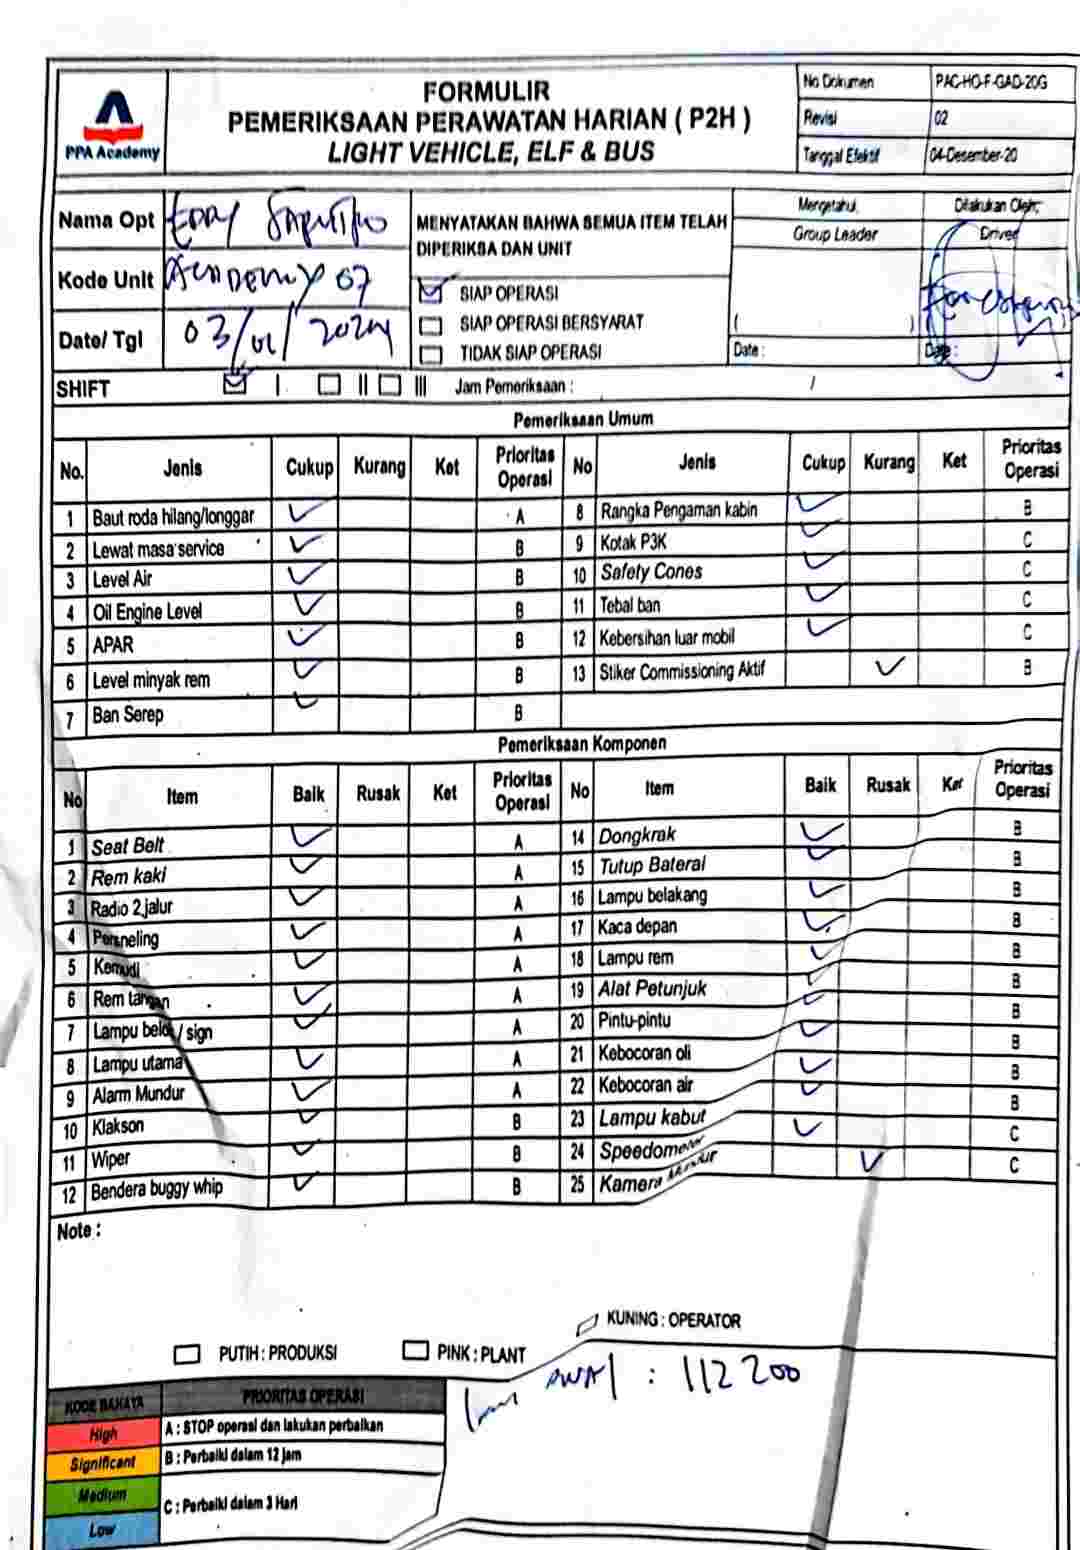 PPA Academy
FORMULIR
PEMERIKSAAN PERAWATAN HARIAN ( P2H )
LIGHT VEHICLE, ELF & BUS
No Dokumen PAC-HO-F-GAD-20G
Revisi 02
Tanggal Efektif 04-Desember-20
Nama Opt Eddy Saputro
Kode Unit Academy 07
Date/ Tgl 03/01/2024
MENYATAKAN BAHWA SEMUA ITEM TELAH
DIPERIKSA DAN UNIT
SIAP OPERASI
SIAP OPERASI BERSYARAT
TIDAK SIAP OPERASI
Mengetahui, Dilakukan Oleh;
Group Leader Driver
( )
Date : Date :
SHIFT I II III Jam Pemeriksaan : /
Pemeriksaan Umum
No. Jenis Cukup Kurang Ket Prioritas Operasi No Jenis Cukup Kurang Ket Prioritas Operasi
1 Baut roda hilang/longgar A 8 Rangka Pengaman kabin B
2 Lewat masa service B 9 Kotak P3K C
3 Level Air B 10 Safety Cones C
4 Oil Engine Level B 11 Tebal ban C
5 APAR B 12 Kebersihan luar mobil C
6 Level minyak rem B 13 Stiker Commissioning Aktif B
7 Ban Serep B
Pemeriksaan Komponen
No Item Baik Rusak Ket Prioritas Operasi No Item Baik Rusak Ket Prioritas Operasi
1 Seat Belt A 14 Dongkrak B
2 Rem kaki A 15 Tutup Baterai B
3 Radio 2 jalur A 16 Lampu belakang B
4 Persneling A 17 Kaca depan B
5 Kemudi A 18 Lampu rem B
6 Rem tangan A 19 Alat Petunjuk B
7 Lampu belok / sign A 20 Pintu-pintu B
8 Lampu utama A 21 Kebocoran oli B
9 Alarm Mundur A 22 Kebocoran air B
10 Klakson B 23 Lampu kabut B
11 Wiper B 24 Speedometer C
12 Bendera buggy whip B 25 Kamera Mundur C
Note :
PUTIH : PRODUKSI PINK : PLANT KUNING : OPERATOR
km awal : 112200
KODE BAHAYA PRIORITAS OPERASI
High A : STOP operasi dan lakukan perbaikan
Significant B : Perbaiki dalam 12 jam
Medium
C : Perbaiki dalam 3 Hari
Low